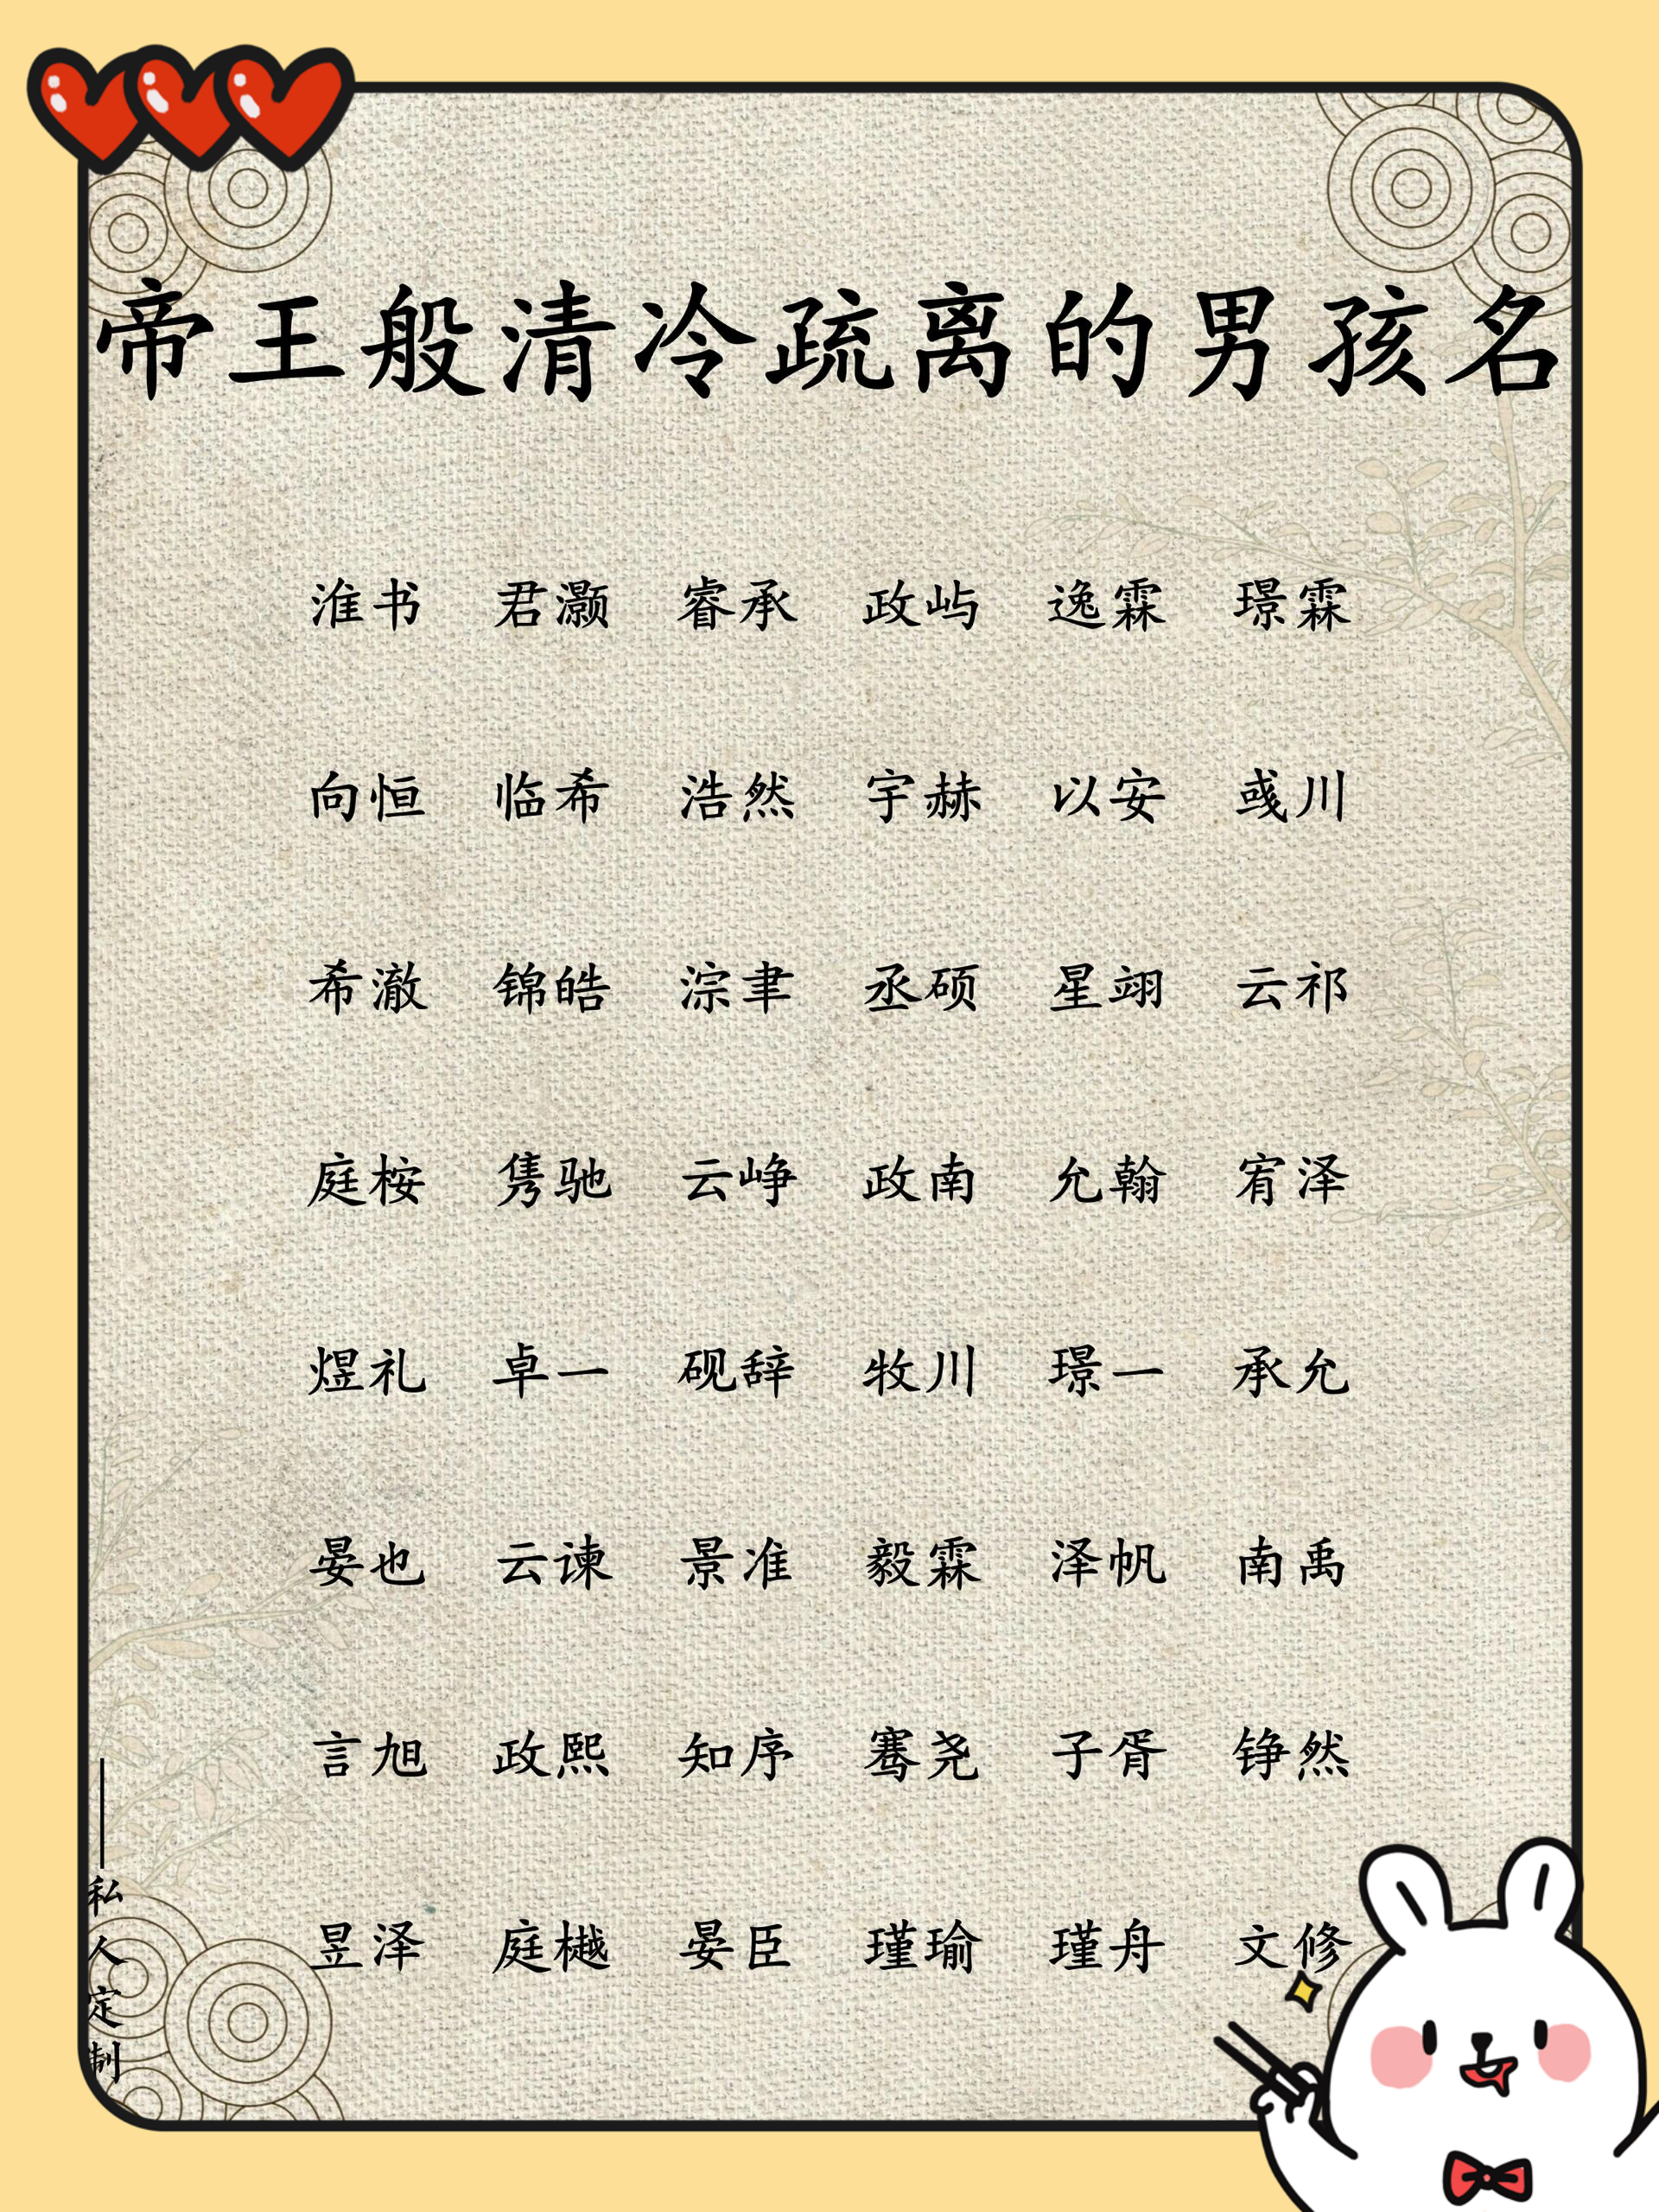 帝王般清冷疏离的男孩名
淮书 君灏 睿承 政屿 逸霖 璟霖
向恒 临希 浩然 宇赫 以安 彧川
希澈 锦皓 淙聿 丞硕 星翊 云祁
庭桉 隽驰 云峥 政南 允翰 宥泽
煜礼 卓一 砚辞 牧川 璟一 承允
晏也 云谏 景准 毅霖 泽帆 南禹
言旭 政熙 知序 骞尧 子胥 铮然
昱泽 庭樾 晏臣 瑾瑜 瑾舟 文修
——私人定制